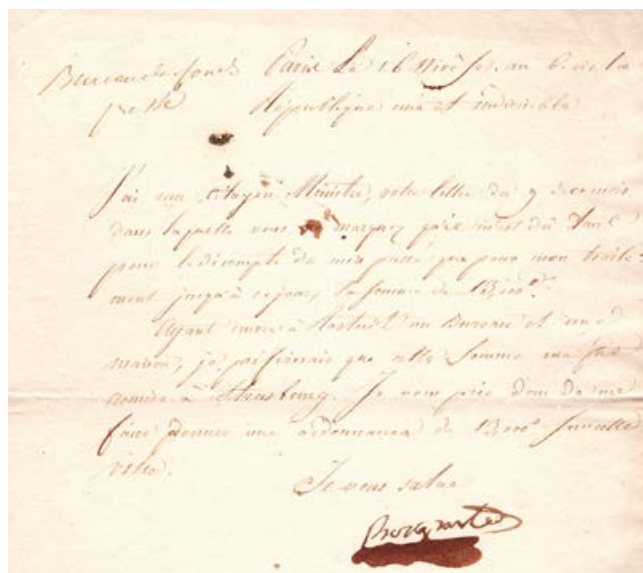 Bureau des fonds Paris Le 16 Nivôse an 6 de la
République une et indivisible
J'ai reçu, citoyen Ministre, votre lettre du 9 de ce mois
dans laquelle vous me marquez qu'il m'est dû tant
pour le décompte de mon passé que pour mon traite-
ment jusqu'à ce jour, la somme de 13,000
Ayant encore à un Bureau et une
maison, je préférerais que cette somme me fut
à Strasbourg. Je vous prie donc de me
faire donner une ordonnance de 13000 sur cette
ville.
Je vous salue
Bonaparte